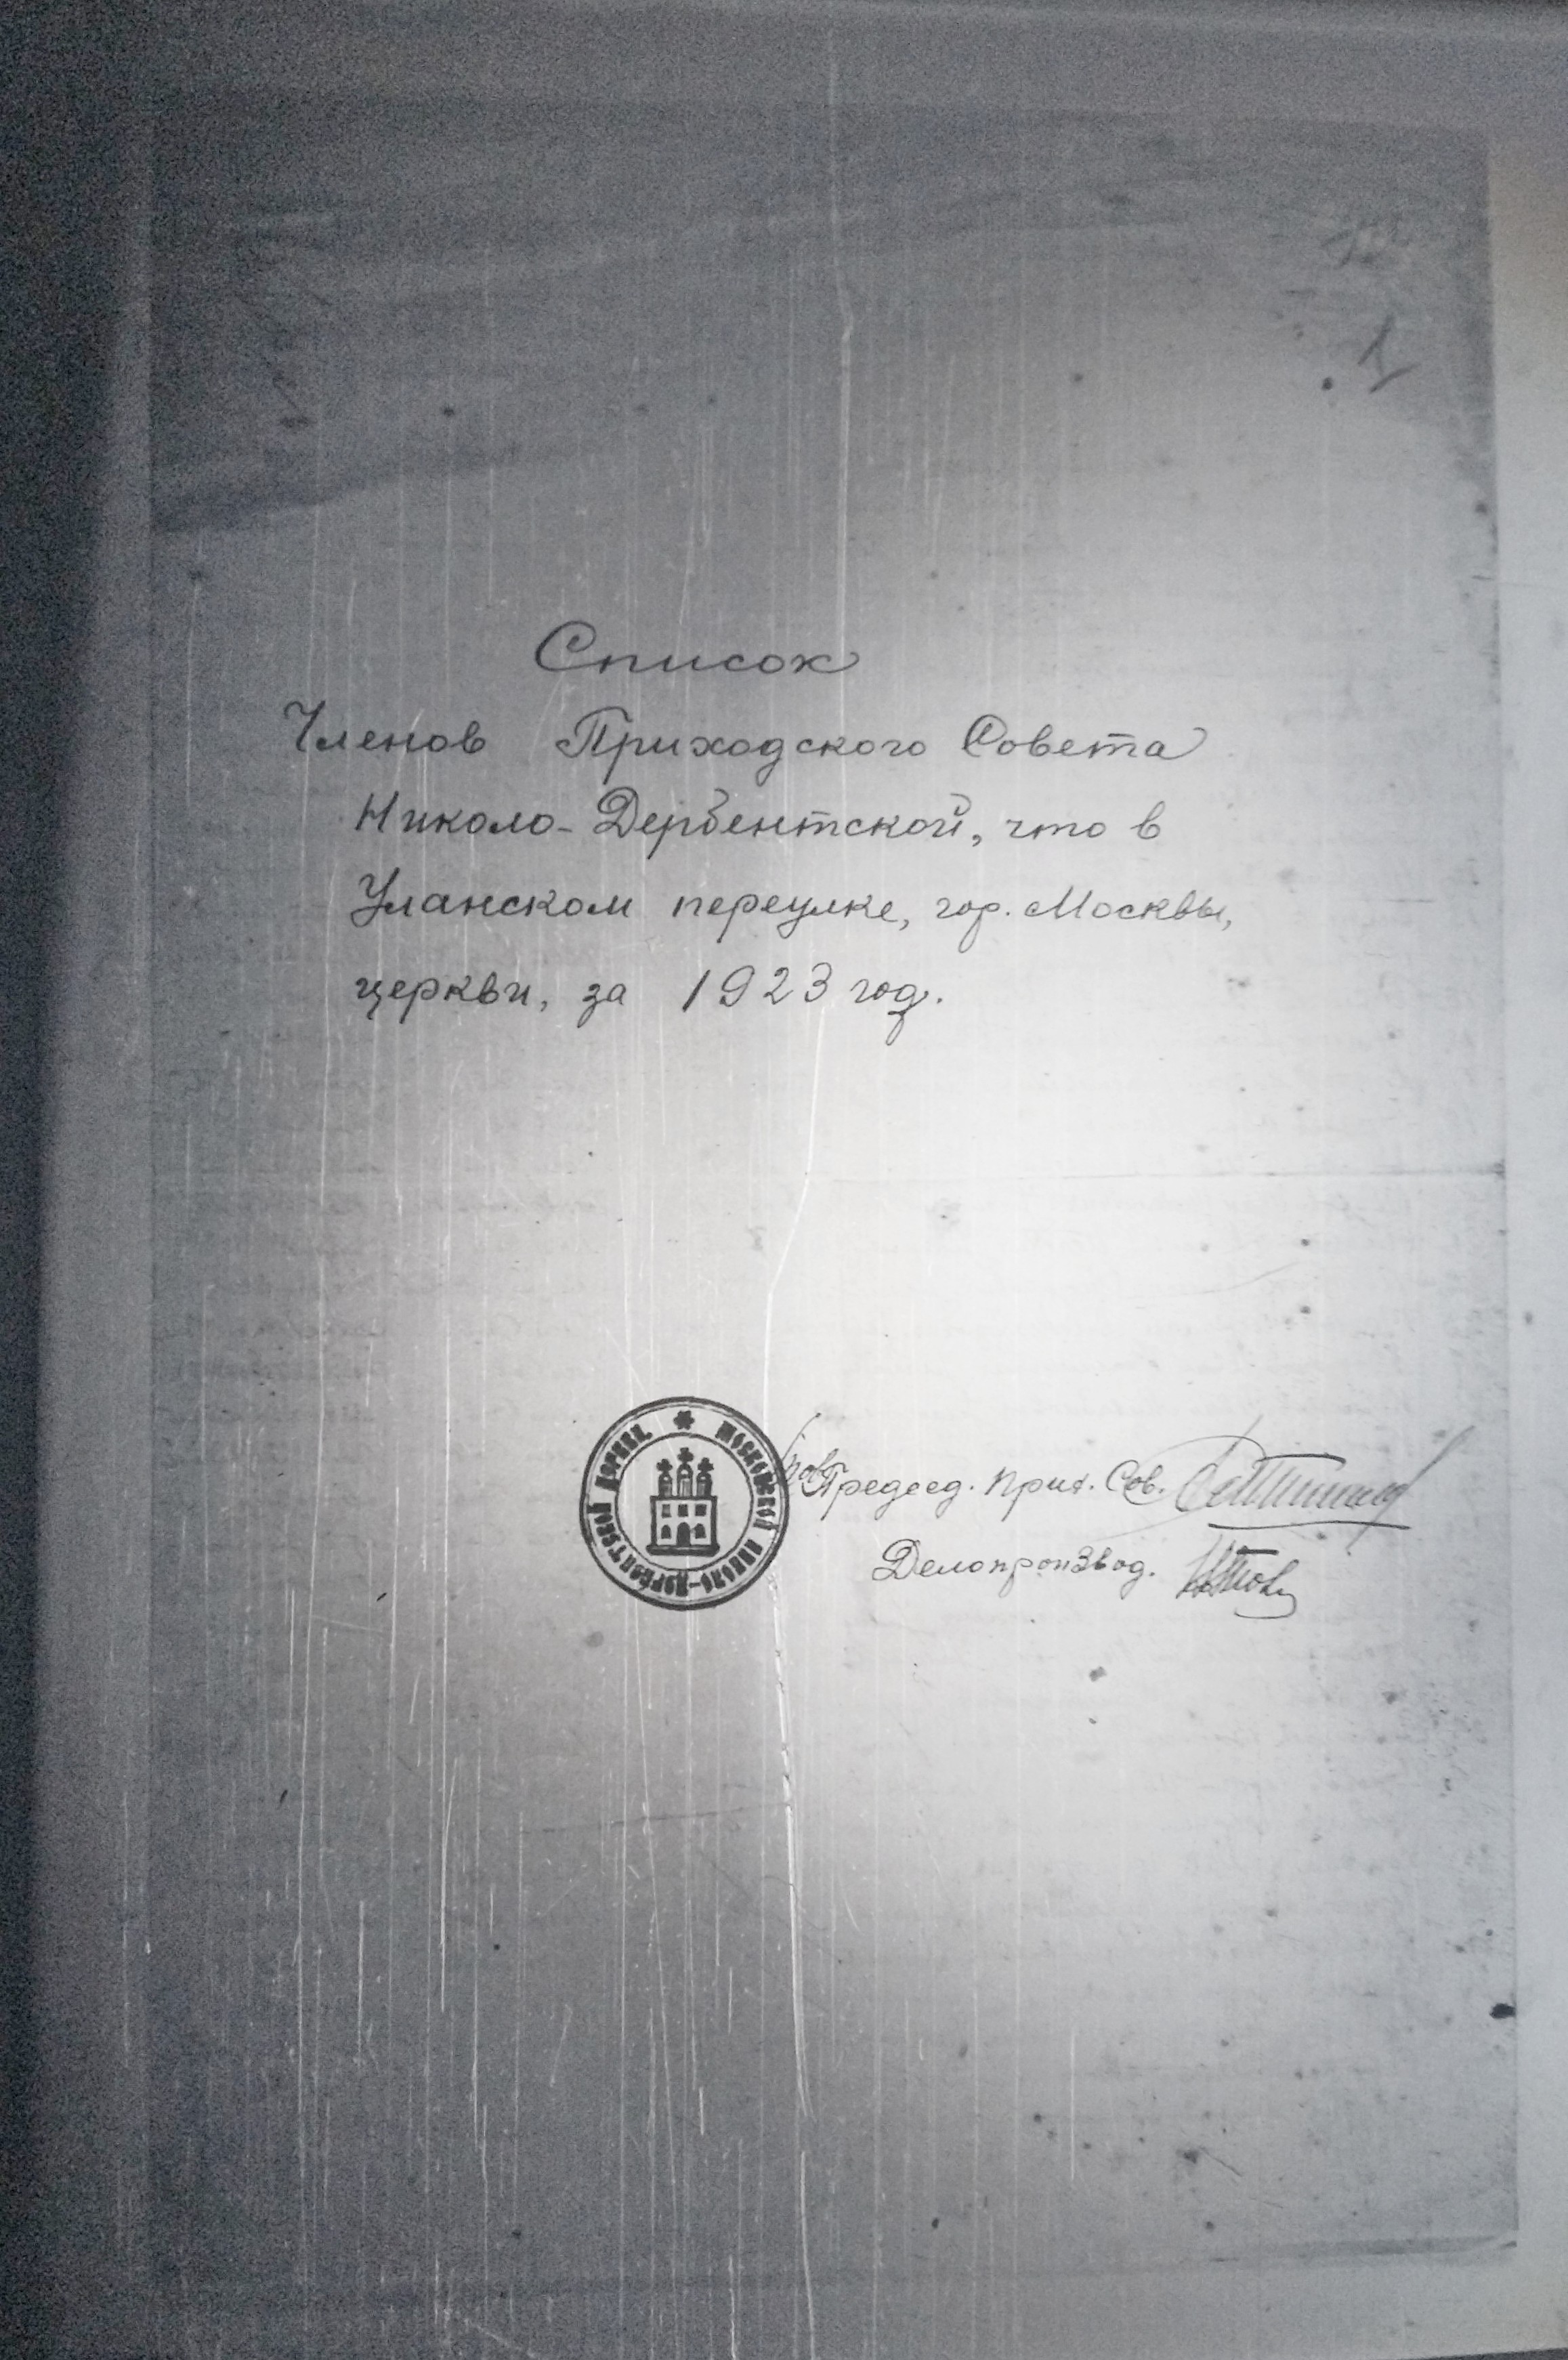 1
Список
Членов Приходского Совета
Николо-Дербентской, что в
Уланском переулке, гор. Москвы,
церкви, за 1923 год.
МОСКОВСКОЙ НИКОЛО-ДЕРБЕНТСКОЙ ЦЕРКВИ
Тов. Председ. Прих. Сов.
Делопроизвод.